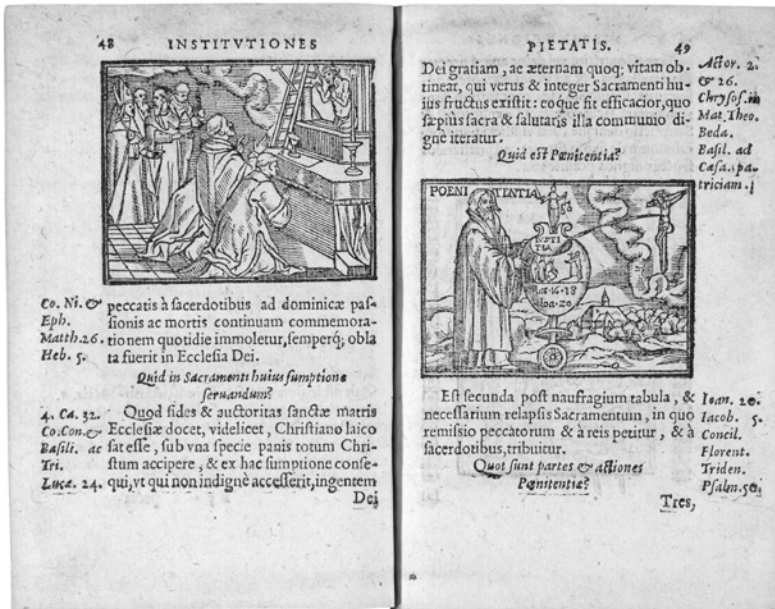 48 INSTITVTIONES
Co. Ni. &
Eph.
Matth. 26.
Heb. 5.
peccatis à sacerdotibus ad dominicæ pas-
sionis ac mortis continuam commemora-
tionem quotidie immoletur, semperq; obla
ta fuerit in Ecclesia Dei.
Quid in Sacramenti huius sumptione
seruandum?
4. Ca. 32.
Co. Con. &
Basili. ac
Tri.
Lucæ. 24.
Quod fides & auctoritas sanctæ matris
Ecclesiæ docet, videlicet, Christiano laico
sat esse, sub vna specie panis totum Chri-
stum accipere, & ex hac sumptione conse-
qui, vt qui non indignè accesserit, ingentem
Dei
PIETATIS. 49
Dei gratiam, ac æternam quoq; vitam ob-
tineat, qui verus & integer Sacramenti hu-
ius fructus existit: eoque fit efficacior, quo
sæpius sacra & salutaris illa communio di-
gnè iteratur.
Actor. 2.
& 26.
Chrysos. in
Mat. Theo.
Beda.
Basil. ad
Cæsa. pa-
triciam.
Quid est Pœnitentia?
POENI TENTIA
IVSTI
TIA
Mat. 16. 18
Ioa. 20.
Est secunda post naufragium tabula, &
necessarium relapsis Sacramentum, in quo
remissio peccatorum & à reis petitur, & à
sacerdotibus, tribuitur.
Ioan. 20.
Iacob. 5.
Concil.
Florent.
Triden.
Psalm. 50.
Quot sunt partes & actiones
Pœnitentiæ?
Tres,